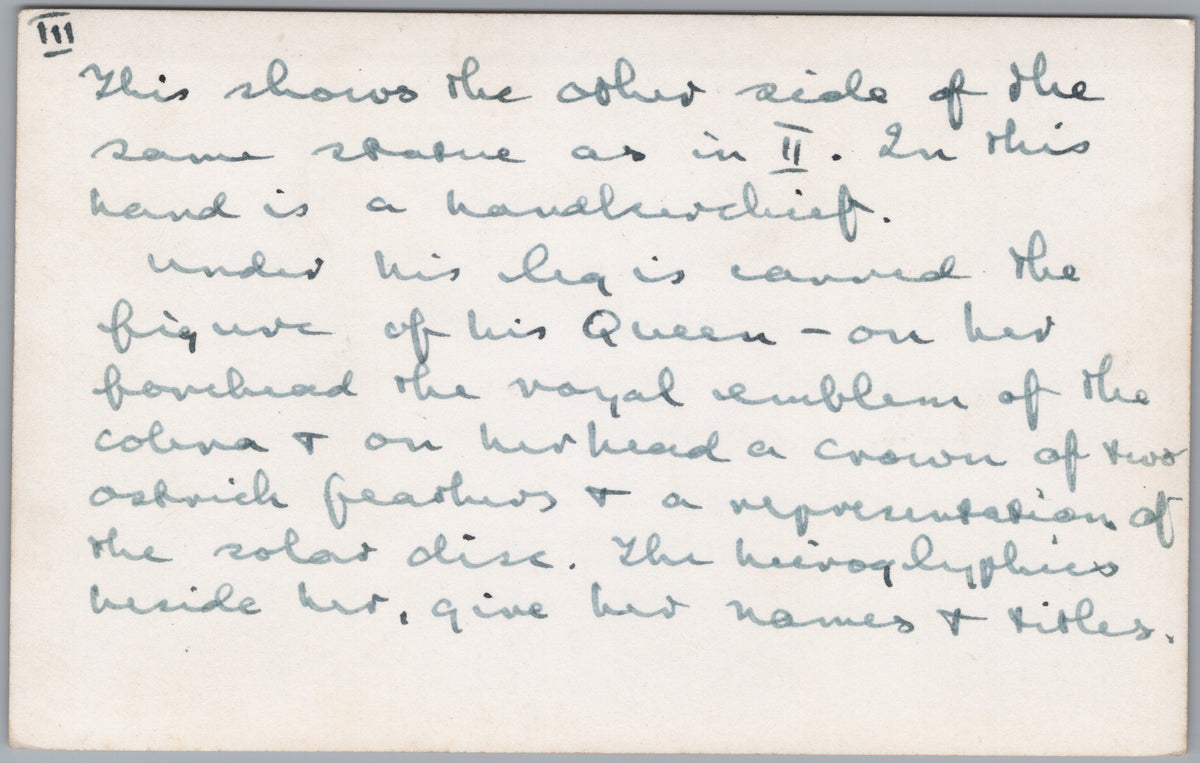 III
This shows the other side of the
same statue as in II. In this
hand is a handkerchief.
under his leg is carved the
figure of his Queen – on her
forehead the royal emblem of the
cobra + on her head a crown of two
ostrich feathers + a representation of
the solar disc. The hieroglyphics
beside her, give her names + titles.